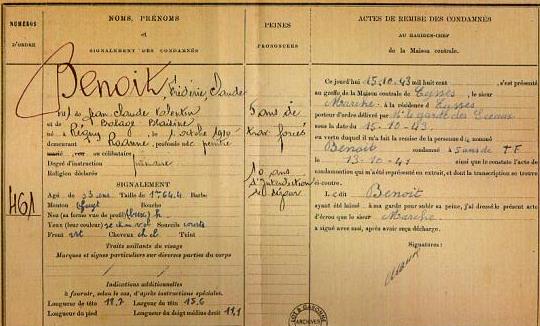 NUMÉROS
D'ORDRE
NOMS, PRÉNOMS
et
SIGNALEMENT DES CONDAMNÉS
PEINES
PRONONCÉES
ACTES DE REMISE DES CONDAMNÉS
AU GARDIEN-CHEF
de la Maison centrale.
461
Benoit, Frédéric, Claude
de Jean Claude Valentin
et de Balage
né à Régny, le 1 octobre 1910
demeurant Roanne, profession de peintre
ou célibataire
Degré d'instruction primaire
Religion déclarée
SIGNALEMENT
Agé de 33 ans Taille de 1m 64,4 Barbe
Menton Bouche
Nez (sa forme vue de profil)
Yeux (leur couleur) Sourcils
Front Cheveux Teint
Traits saillants du visage
Marques et signes particuliers sur diverses parties du corps
Indications additionnelles
à fournir, selon le cas, d'après instructions spéciales.
Longueur de tête Largeur de tête 15,6
Longueur du pied Longueur du doigt médius droit 11,1
5 ans de
trav. forcés
10 ans
d'interdiction
de séjour
Ce jourd'hui 15-10-43 mil huit cent , s'est présenté
au greffe de la Maison centrale de Eysses, le sieur
Marche, à la résidence d Eysses
porteur d'ordre délivré par M. le garde des Sceaux
sous la date du 15-10-43.
en vertu duquel il m'a fait la remise de la personne d nommé
Benoit condamné à 5 ans de T F
le 13-10-41 ainsi que constate l'acte de
condamnation qui m'a été représenté en extrait, et dont la transcription se trouve
ci-contre.
L dit Benoit
ayant été laissé à ma garde pour subir sa peine, j'ai dressé le présent acte
d'écrou que le sieur Marche
a signé avec moi, après avoir reçu décharge.
Signatures :
LOT & GARONNE
ARCHIVES